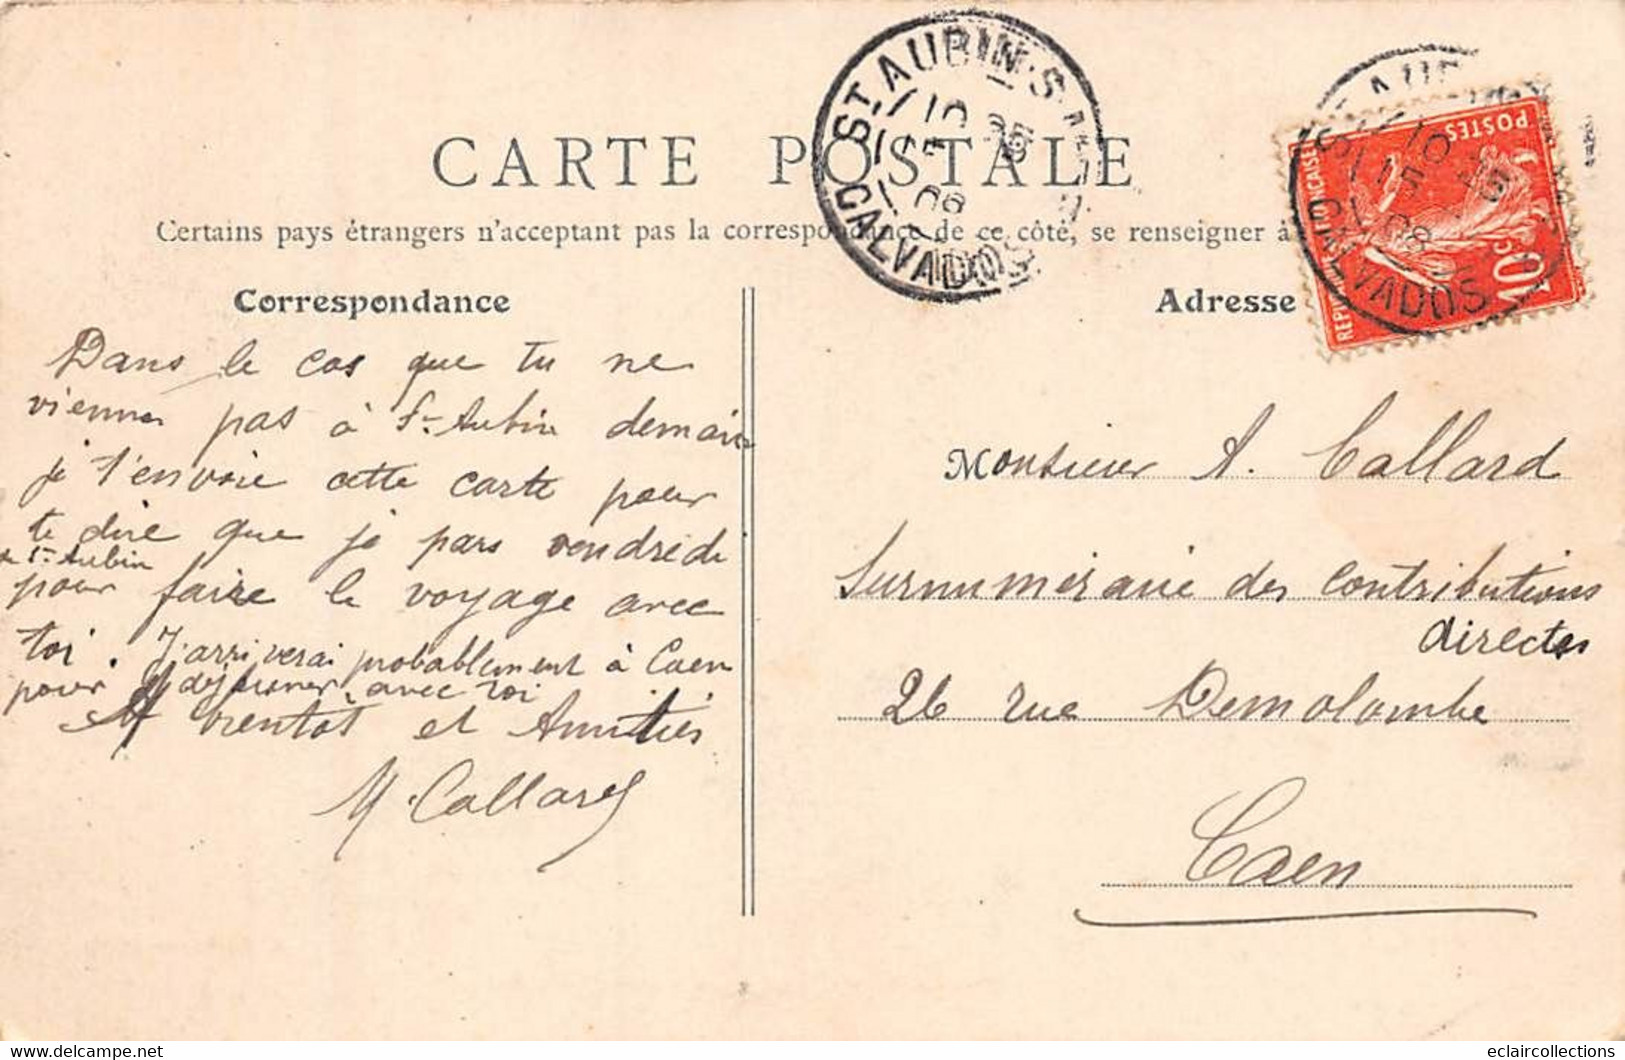 CARTE POSTALE
Certains pays étrangers n'acceptant pas la correspondance de ce côté, se renseigner à
ST AUBIN-S-
10
15
08
CALVADOS
Correspondance
Dans le cas que tu ne
viennes pas à St-Aubin demain
je t'envoie cette carte pour
te dire que je pars vendredi
de St-Aubin
pour faire le voyage avec
toi. J'arriverai probablement à Caen
pour déjeuner avec toi
A bientôt et Amitiés
M. Callard
Adresse
RÉPUBLIQUE FRANÇAISE
POSTES
10c
CALVADOS
Monsieur A. Callard
Surnuméraire des contributions
directes
26 rue Demolombe
Caen
eclaircollections